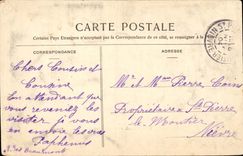 CARTE POSTALE
Certains Pays Étrangers n'acceptent pas la Correspondance de ce côté, se renseigner
CORRESPONDANCE
ADRESSE
Chers Cousins et
Cousine
En attendant que
vous reveniez les
visiter je vous
en envoie les vues
Mr et Mme Pierre Coin
Propriétaire à St Pierre
le Moutier
Nièvre